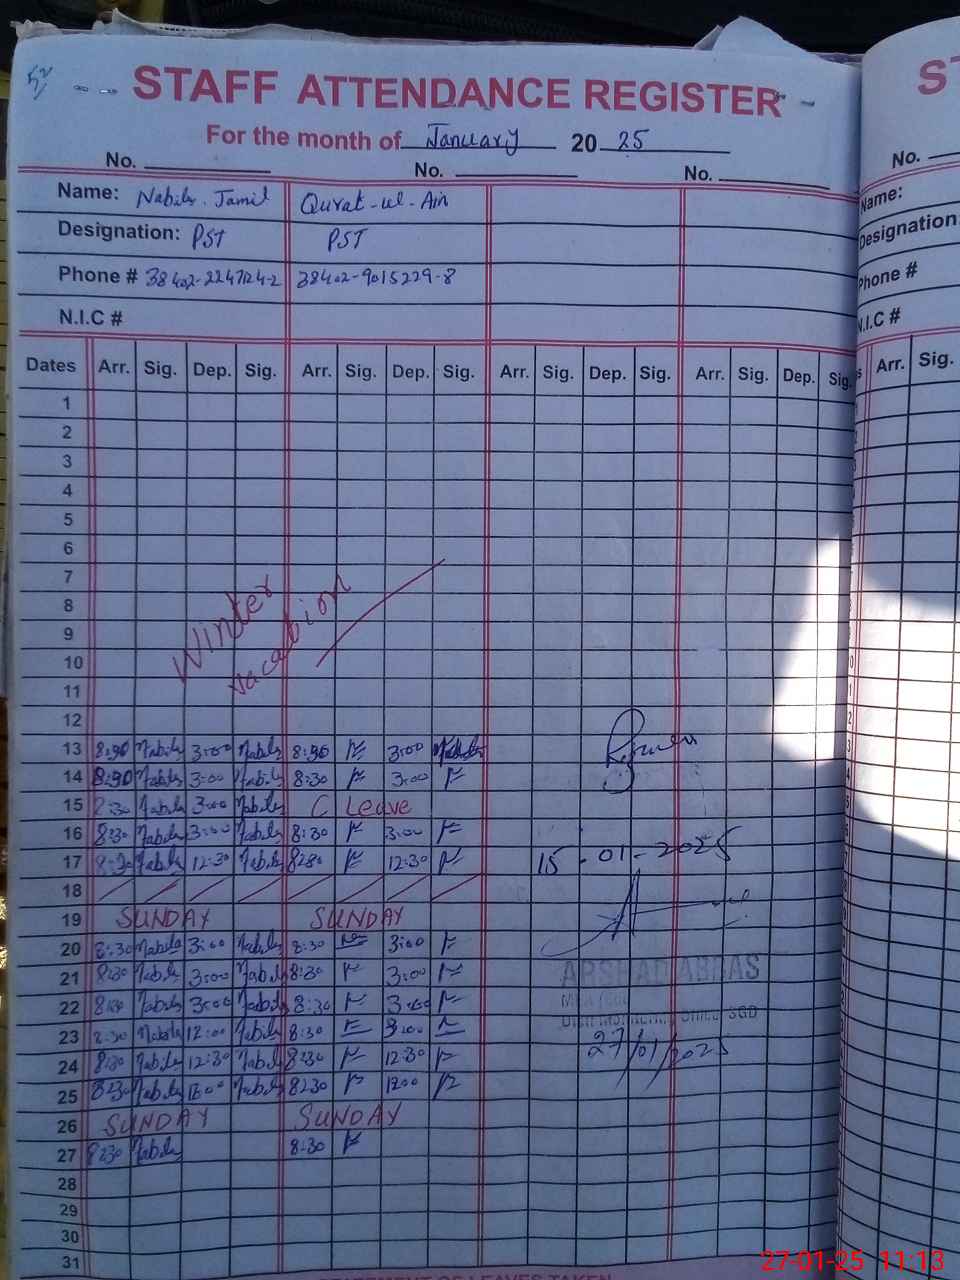 52
STAFF ATTENDANCE REGISTER
For the month of January 20 25
No. No. No.
Name: Nabila Jamil Qurat-ul-Ain
Designation: PST PST
Phone # 38402-2247124-2 38402-9015229-8
N.I.C #
Dates Arr. Sig. Dep. Sig. Arr. Sig. Dep. Sig. Arr. Sig. Dep. Sig. Arr. Sig. Dep. Sig.
1
2
3
4
5
6
7
8
9
10
11
12
Winter
vacation
13 Nabila 3:00 Nabila 3:00
14 Nabila 3:00 Nabila 8:30 3:00
15 8:30 Nabila 3:00 Nabila C Leave
16 8:30 Nabila 3:00 Nabila 8:30 3:00
17 8:30 Nabila 12:30 Nabila 8:30 12:30
15-01-2025
18
19 SUNDAY SUNDAY
20 8:30 Nabila 3:00 Nabila 8:30 3:00
21 8:30 Nabila 3:00 Nabila 8:30 3:00
ARSHAD ABBAS
22 Nabila 3:00 Nabila 8:30 3:00
SGD
23 8:30 Nabila 12:00 Nabila 8:30
27/01/2025
24 8:30 Nabila 12:30 Nabila 8:30 12:30
25 8:30 Nabila Nabila 8:30
26 SUNDAY SUNDAY
27 8:30 Nabila 8:30
28
29
30
31
No.
Name:
Designation:
Phone #
N.I.C #
Arr. Sig.
27-01-25 11:13